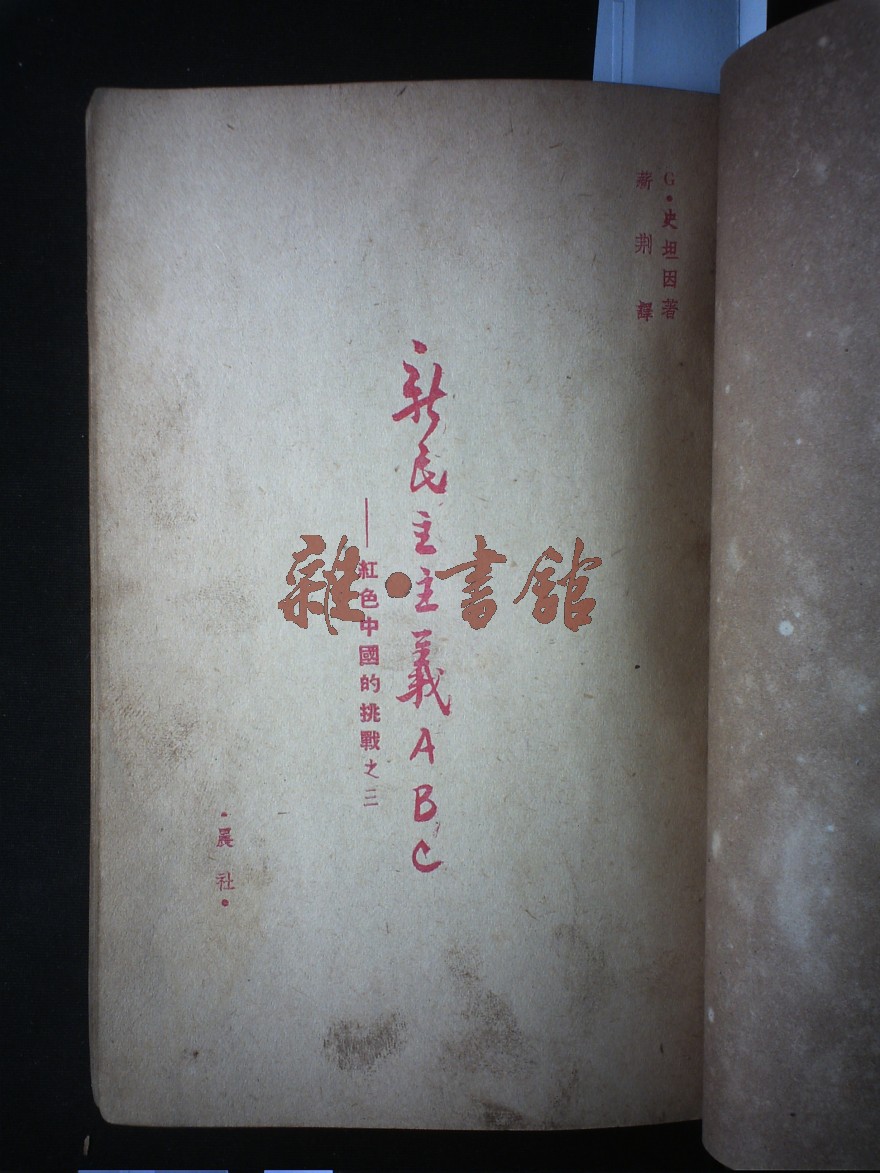 G·史坦因著
薪荆譯
新民主主義ABC
——紅色中國的挑戰之三
·晨社·
雜·書館